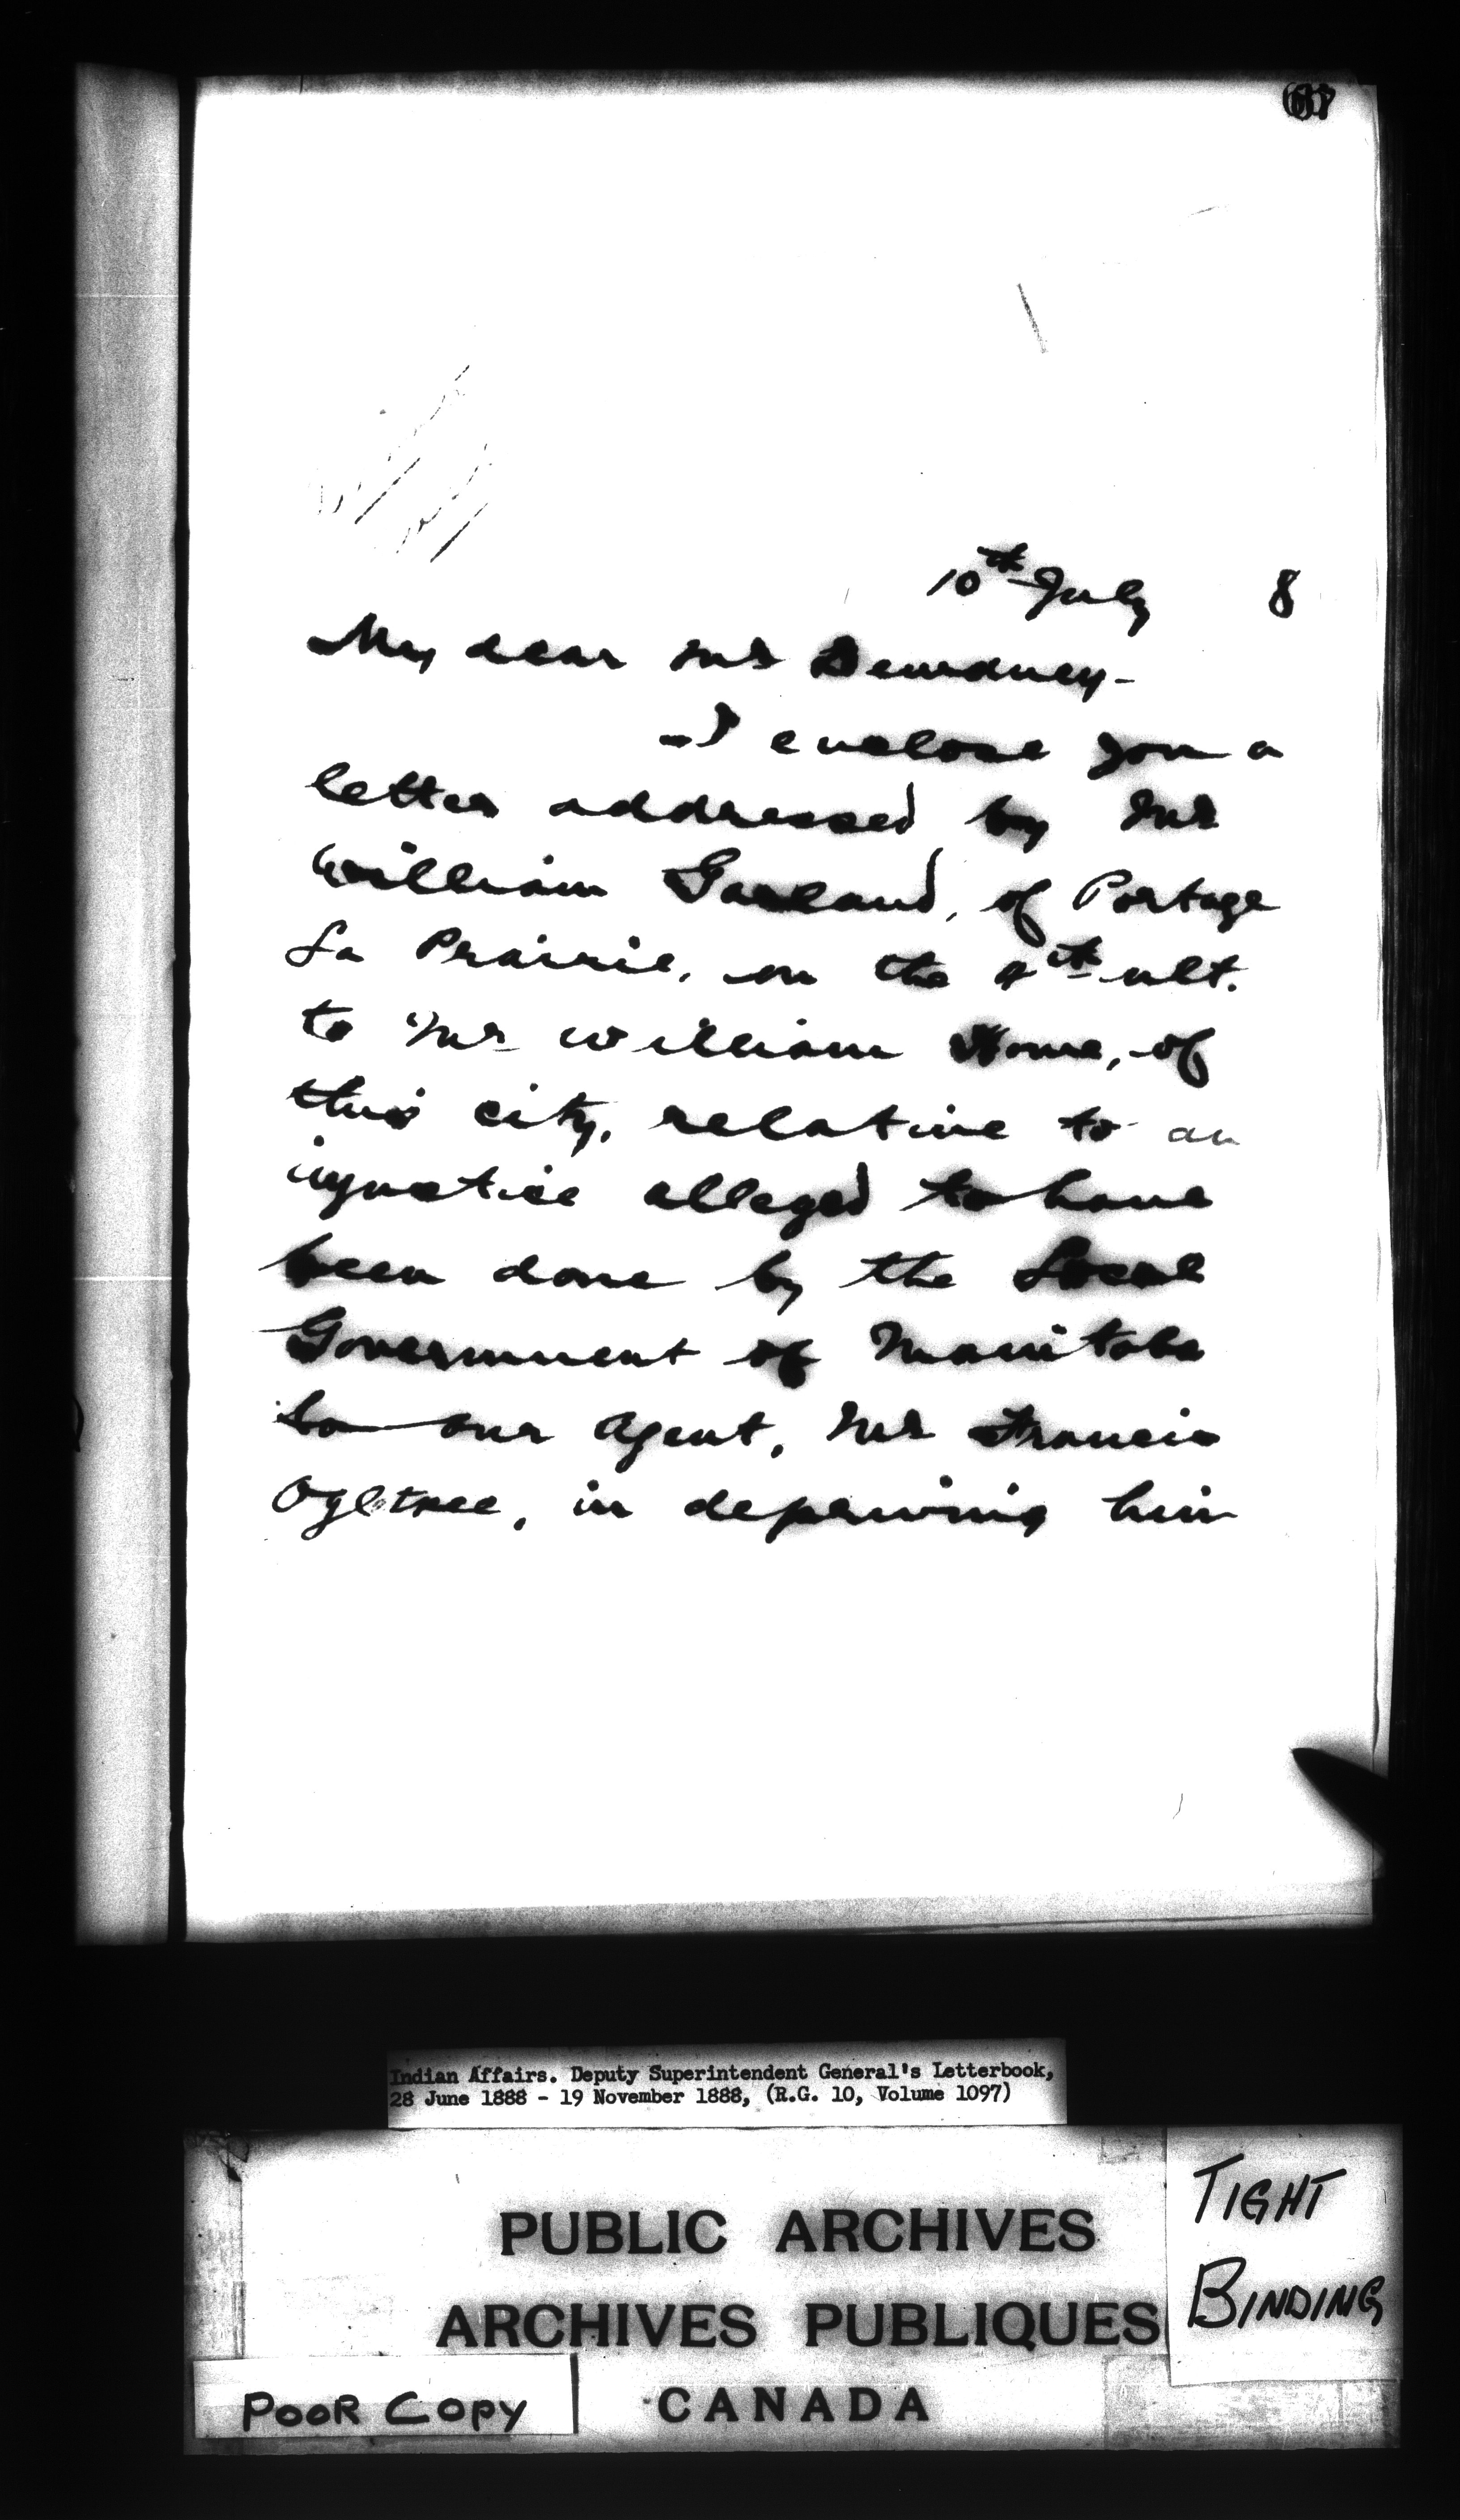 10th July 8
My dear Mr Dewdney-
I enclose you a
letter addressed by Mr
William Garland, of Portage
La Prairie, on the 9th ult.
to Mr William Home, of
this city, relative to an
injustice alleged to have
been done by the Local
Government of Manitoba
to our Agent, Mr Francis
Ogletree, in depriving him
Indian Affairs. Deputy Superintendent General's Letterbook,
28 June 1888 - 19 November 1888, (R.G. 10, Volume 1097)
PUBLIC ARCHIVES
ARCHIVES PUBLIQUES
CANADA
TIGHT
BINDING
POOR COPY